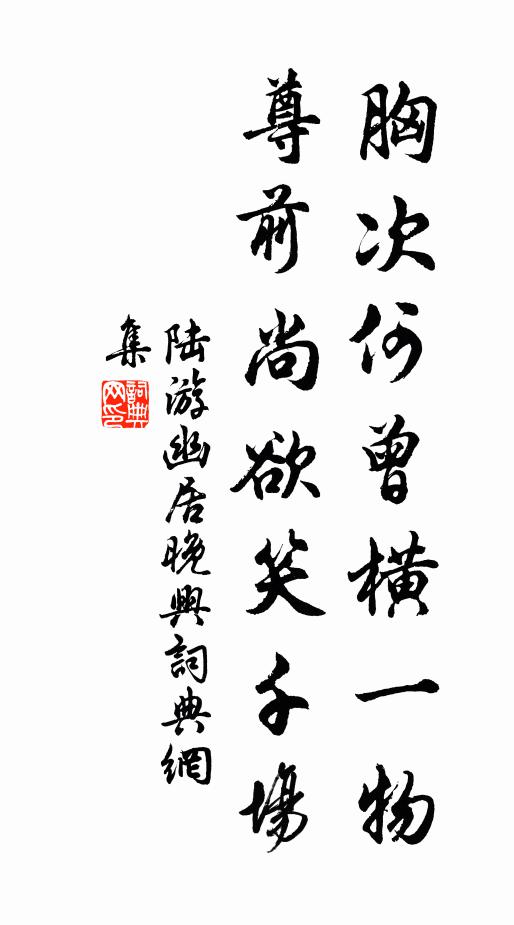 胸次何曾橫一物
尊前尚欲笑千場
陸游幽居晚興詞典網
集
詞典
网印